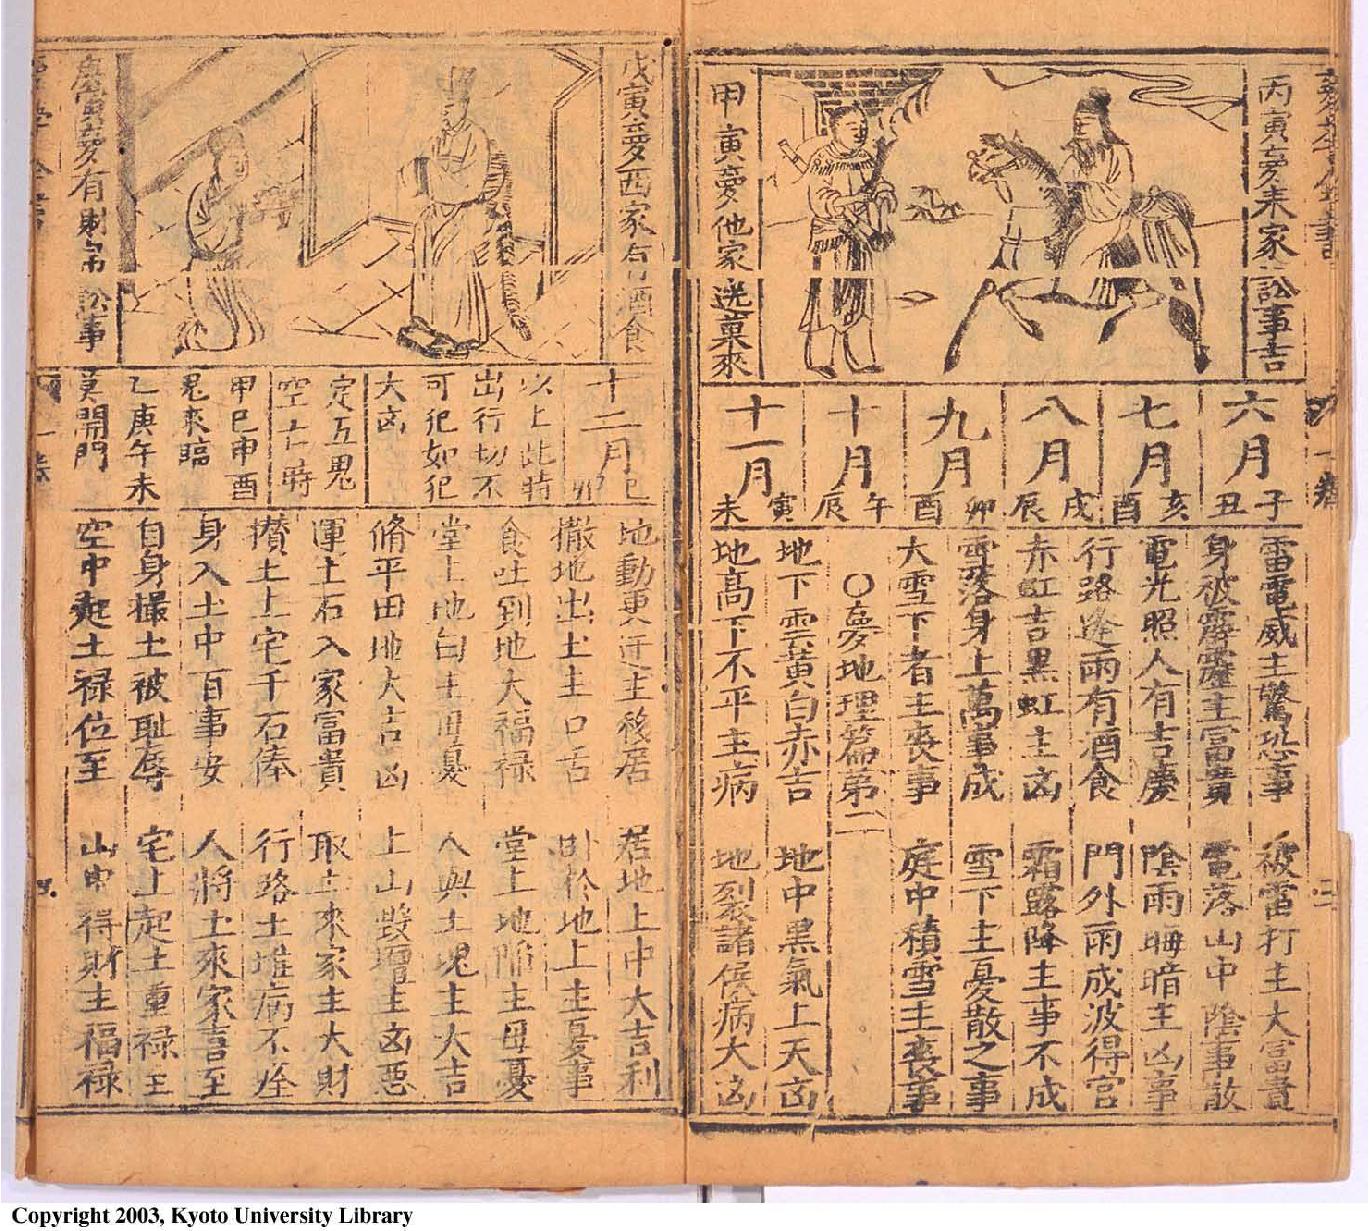 丙寅夢未家訟事吉
甲寅夢他家送菓來
六月 子丑
七月 亥酉
八月 戌辰
九月 卯酉
十月 午辰
十一月 寅未
雷電威主驚恐事 被雷打主大富貴
身被霹靂主富貴 電落山中陰事散
電光照人有吉慶 陰雨晦暗主凶事
行路逢雨有酒食 門外雨成波得官
赤虹吉黒虹主凶 霜露降主事不成
雪落身上萬事成 雪下主憂散之事
大雪下者主喪事 庭中積雪主喪事
○夢地理篇第二
地下雲黄白赤吉 地中黒氣上天凶
地高下不平主病 地裂諸侯病大凶
戊寅夢西家有酒食
庚寅夢有財帛訟事
十二月 巳卯
以上此時
出行切不
可犯如犯
大凶
定五鬼
空亡時
甲巳申酉
鬼來臨
乙庚午未
莫開門
地動更迁主移居 居地上中大吉利
撒地出土主口舌 卧於地上主憂事
食吐到地大福禄 堂上地陥主母憂
堂上地白主母憂 人與土塊主大吉
脩平田地大吉凶 上山毀壇主凶惡
運土石入家富貴 取土來家主大財
攅土上宅千石俸 行路土堆病不痊
身入土中百事安 人將土來家喜至
自身摸土被耻辱 宅上起土重禄至
空中起土禄位至 山中得財主福禄
Copyright 2003, Kyoto University Library